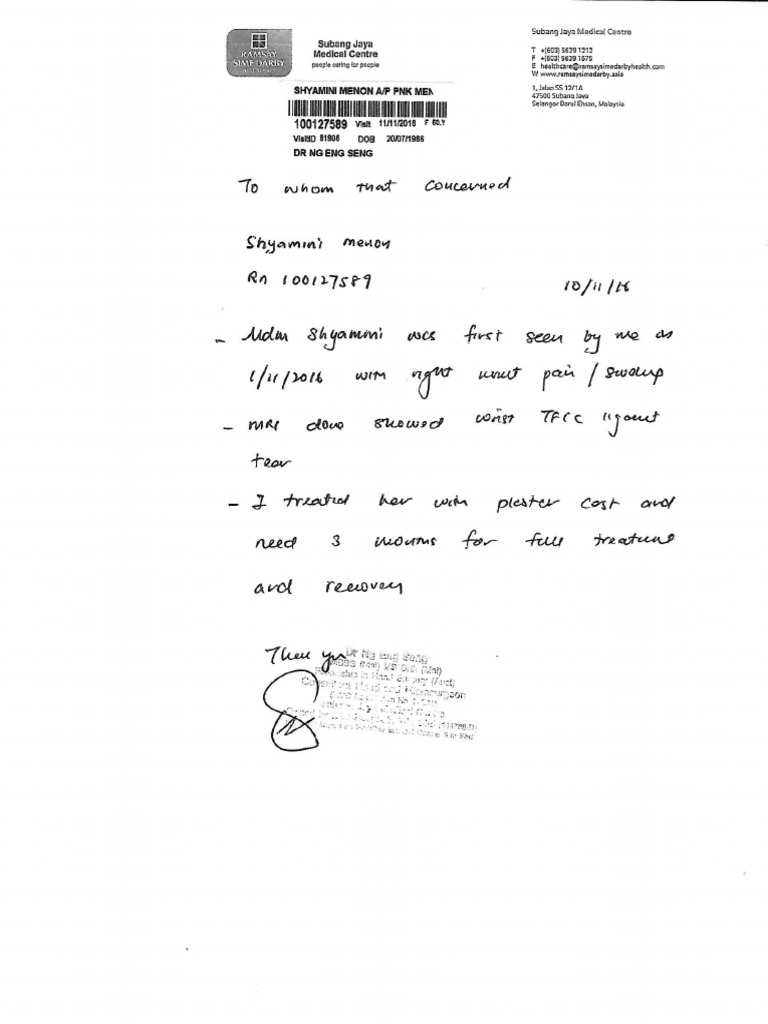 RAMSAY
SIME DARBY
Subang Jaya
Medical Centre
people caring for people
Subang Jaya Medical Centre
T +(603) 5639 1212
F +(603) 5639 1675
E healthcare@ramsaysimedarbyhealth.com
W www.ramsaysimedarby.asia
1, Jalan SS 12/1A
47500 Subang Jaya
Selangor Darul Ehsan, Malaysia
SHYAMINI MENON A/P PNK MEN
100127589 Visit 11/11/2016 F
VisitID 81906 DOB 20/07/1966
DR NG ENG SENG
To whom that concerned
Shyamini Menon
Rn 100127589
10/11/16
- Mdm Shyamini was first seen by me on
1/11/2016 with right wrist pain /
- MRI done showed wrist TFCC ligament
tear
- I treated her with plaster cast and
need 3 months for full treatment
and recovery
Thank you
Dr Ng Eng Seng